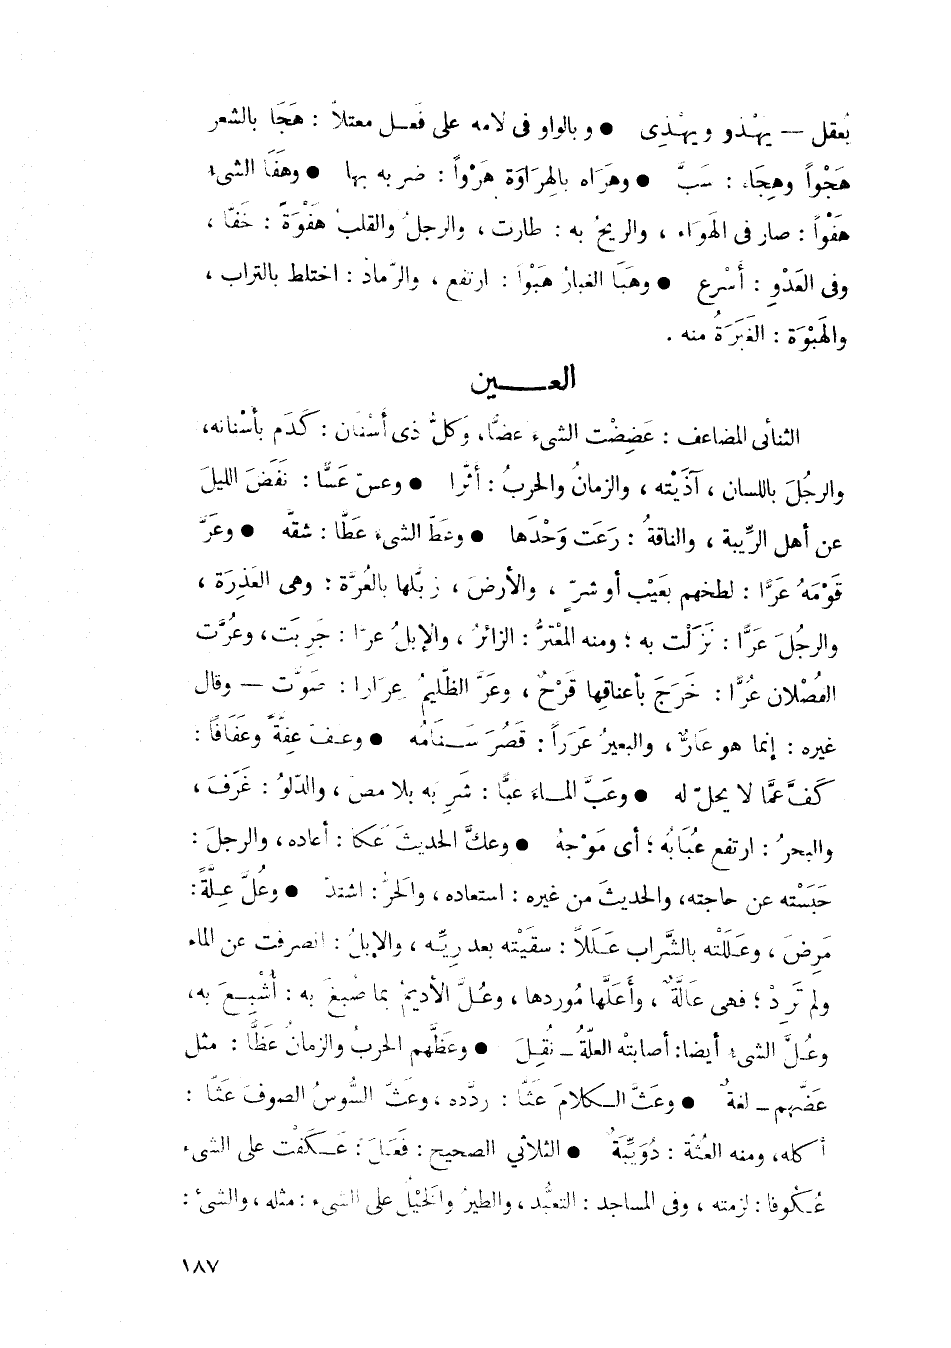 يُعقل — يهْذو ويهْذِى ● وبالواو فى لامه على فَعـل معتلاً : هَجَا بالشعر
هَجْواً وهِجَاء : سَبَّ ● وهرَاه بالهِرَاوَة هَرْواً : ضربه بها ● وهَفَا الشىء
هفْواً : صار فى الهَوَاء ، والريحُ به : طارت ، والرجلُ والقلبُ هفْوَةً : خَفّا ،
وفى العَدْوِ : أَسْرع ● وهَبَا الغبارُ هَبْواً : ارتفع ، والرّمادُ : اختلط بالتراب ،
والهَبْوَة : الغَبَرَةُ منه .
العـــين
الثنائى المضاعف : عَضِضْت الشىءَ عضًّا، وَكلُّ ذى أَسْنَان : كَدَم بأسْنانه،
والرجُلَ باللسان ، آذَيْته ، والزمانُ والحربُ : أثَّرا ● وعسّ عَسًّا : نَفَضَ الليلَ
عن أهل الرِّيبة ، والناقةُ : رَعَت وَحْدَها ● وعَطّ الشىءَ عَطًّا : شقَّه ● وعَرَّ
قَوْمَهُ عَرًّا : لطخهم بعَيْب أو شرّ ، والأرضَ ، زبَّلها بالعُرَّة : وهى العَذِرَة ،
والرجُلَ عَرًّا : نَزَلْت به ؛ ومنه المُعْترُّ : الزائرُ ، والإبلُ عرّا : جَرِبَت، وعُرَّت
الفُصْلان عُرًّا : خَرَجَ بأعناقِها قَرْحٌ ، وعَرَّ الظّليمُ عِرَارا : صَوَّت — وقال
غيره : إنما هو عَارَّ ، والبعيرُ عَرَراً : قَصُرَ سَـنَامُه ● وعـفَّ عِفَّةً وعَفَافًا :
كَفَّ عَمَّا لا يحلّ له ● وعَبَّ المـاءَ عبًّا : شَرِبه بلا مص ، والدّلوُ : غَرَفَ ،
والبحرُ : ارتفع عُبَابُه ؛ أى مَوْجهُ ● وعكَّ الحديثَ عَكًّا : أعاده ، والرجلَ :
حَبَسْته عن حاجته، والحديثَ من غيره : استعاده ، والحَرُّ : اشتدّ ● وعُلَّ عِلَّةً :
مَرِضَ ، وعَـلَلْته بالشَّراب عَـلَلاً : سقَيْته بعد رِيِّـه ، والإبلُ : انصرفت عن الماء
ولم تَرِدْ ؛ فهى عَالَّةٌ ، وأَعَلَّها مُوردها ، وعُـلَّ الأديمُ بما صُبِغَ به : أُشْبِـعَ به،
وعُـلَّ الشىءُ أيضا: أصابتْه العلّةُ ـ نُقِـلَ ● وعَظَّهم الحربُ والزمانُ عَظًّا : مثل
عَضَّهم ـ لغةٌ ● وعَثَّ الـكلامَ عَثًّا : ردّده ، وعَثَّ السُّوسُ الصوفَ عَثًّا :
أكله، ومنه العُثّة : دُوَيِّبَةٌ ● الثلاثي الصحيح : فَعَلَ : عَـكَفْت على الشىء
عُـكُوفا : لزمته ، وفى المساجد : التعبُّد ، والطيرُ والخَيْلُ على الشىء : مثله ، والشىُ :
١٨٧